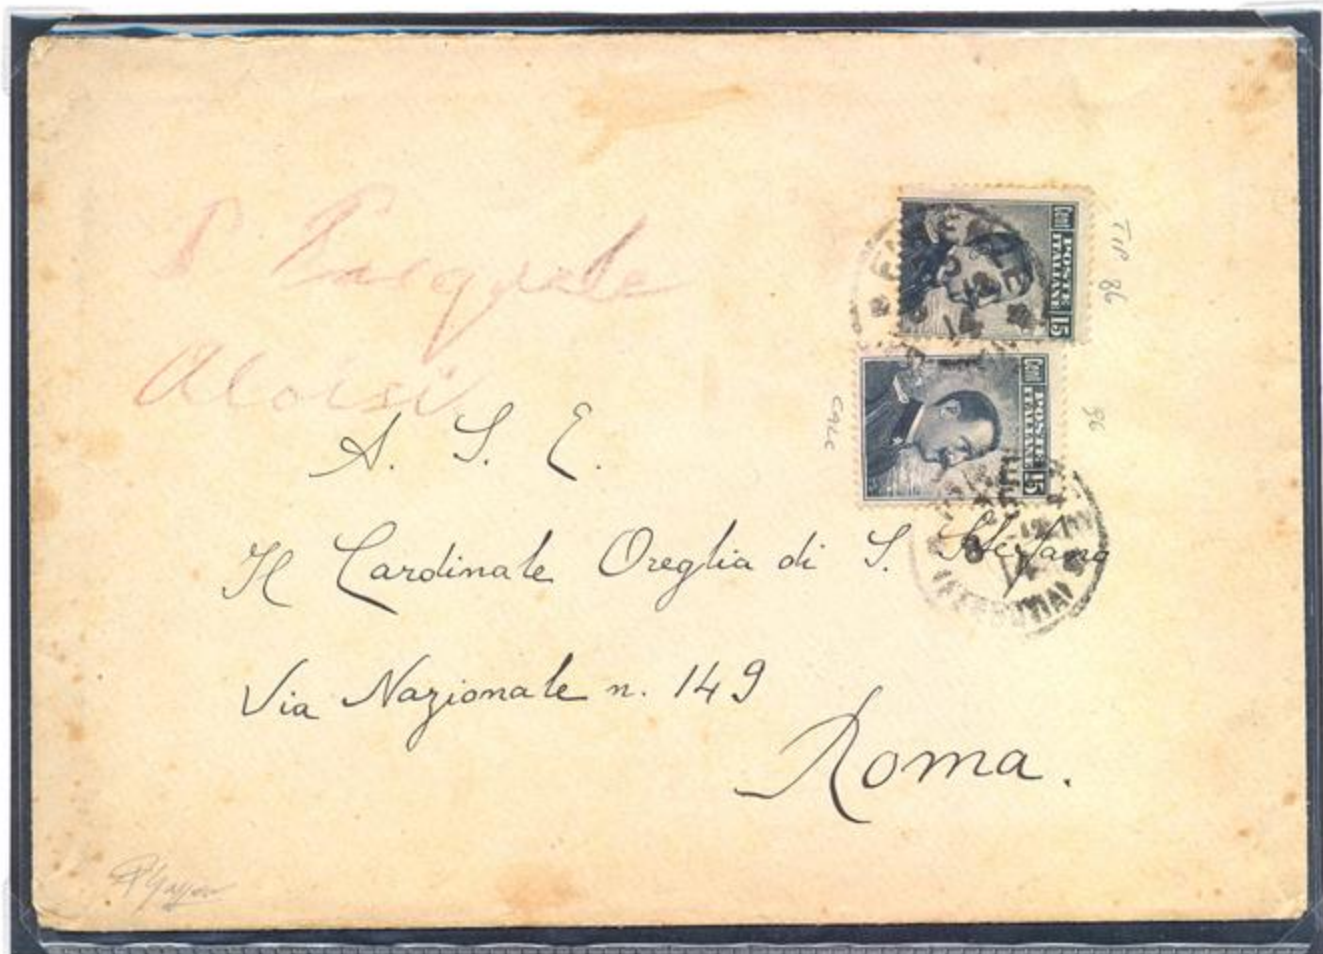 S. Pasquale
Aloisi
A. S. E.
Il Cardinale Oreglia di S. Stefano
Via Nazionale n. 149
Roma.
Cent. 15
POSTE
ITALIANE
TIP 86
Cent. 15
POSTE
ITALIANE
96
CALC